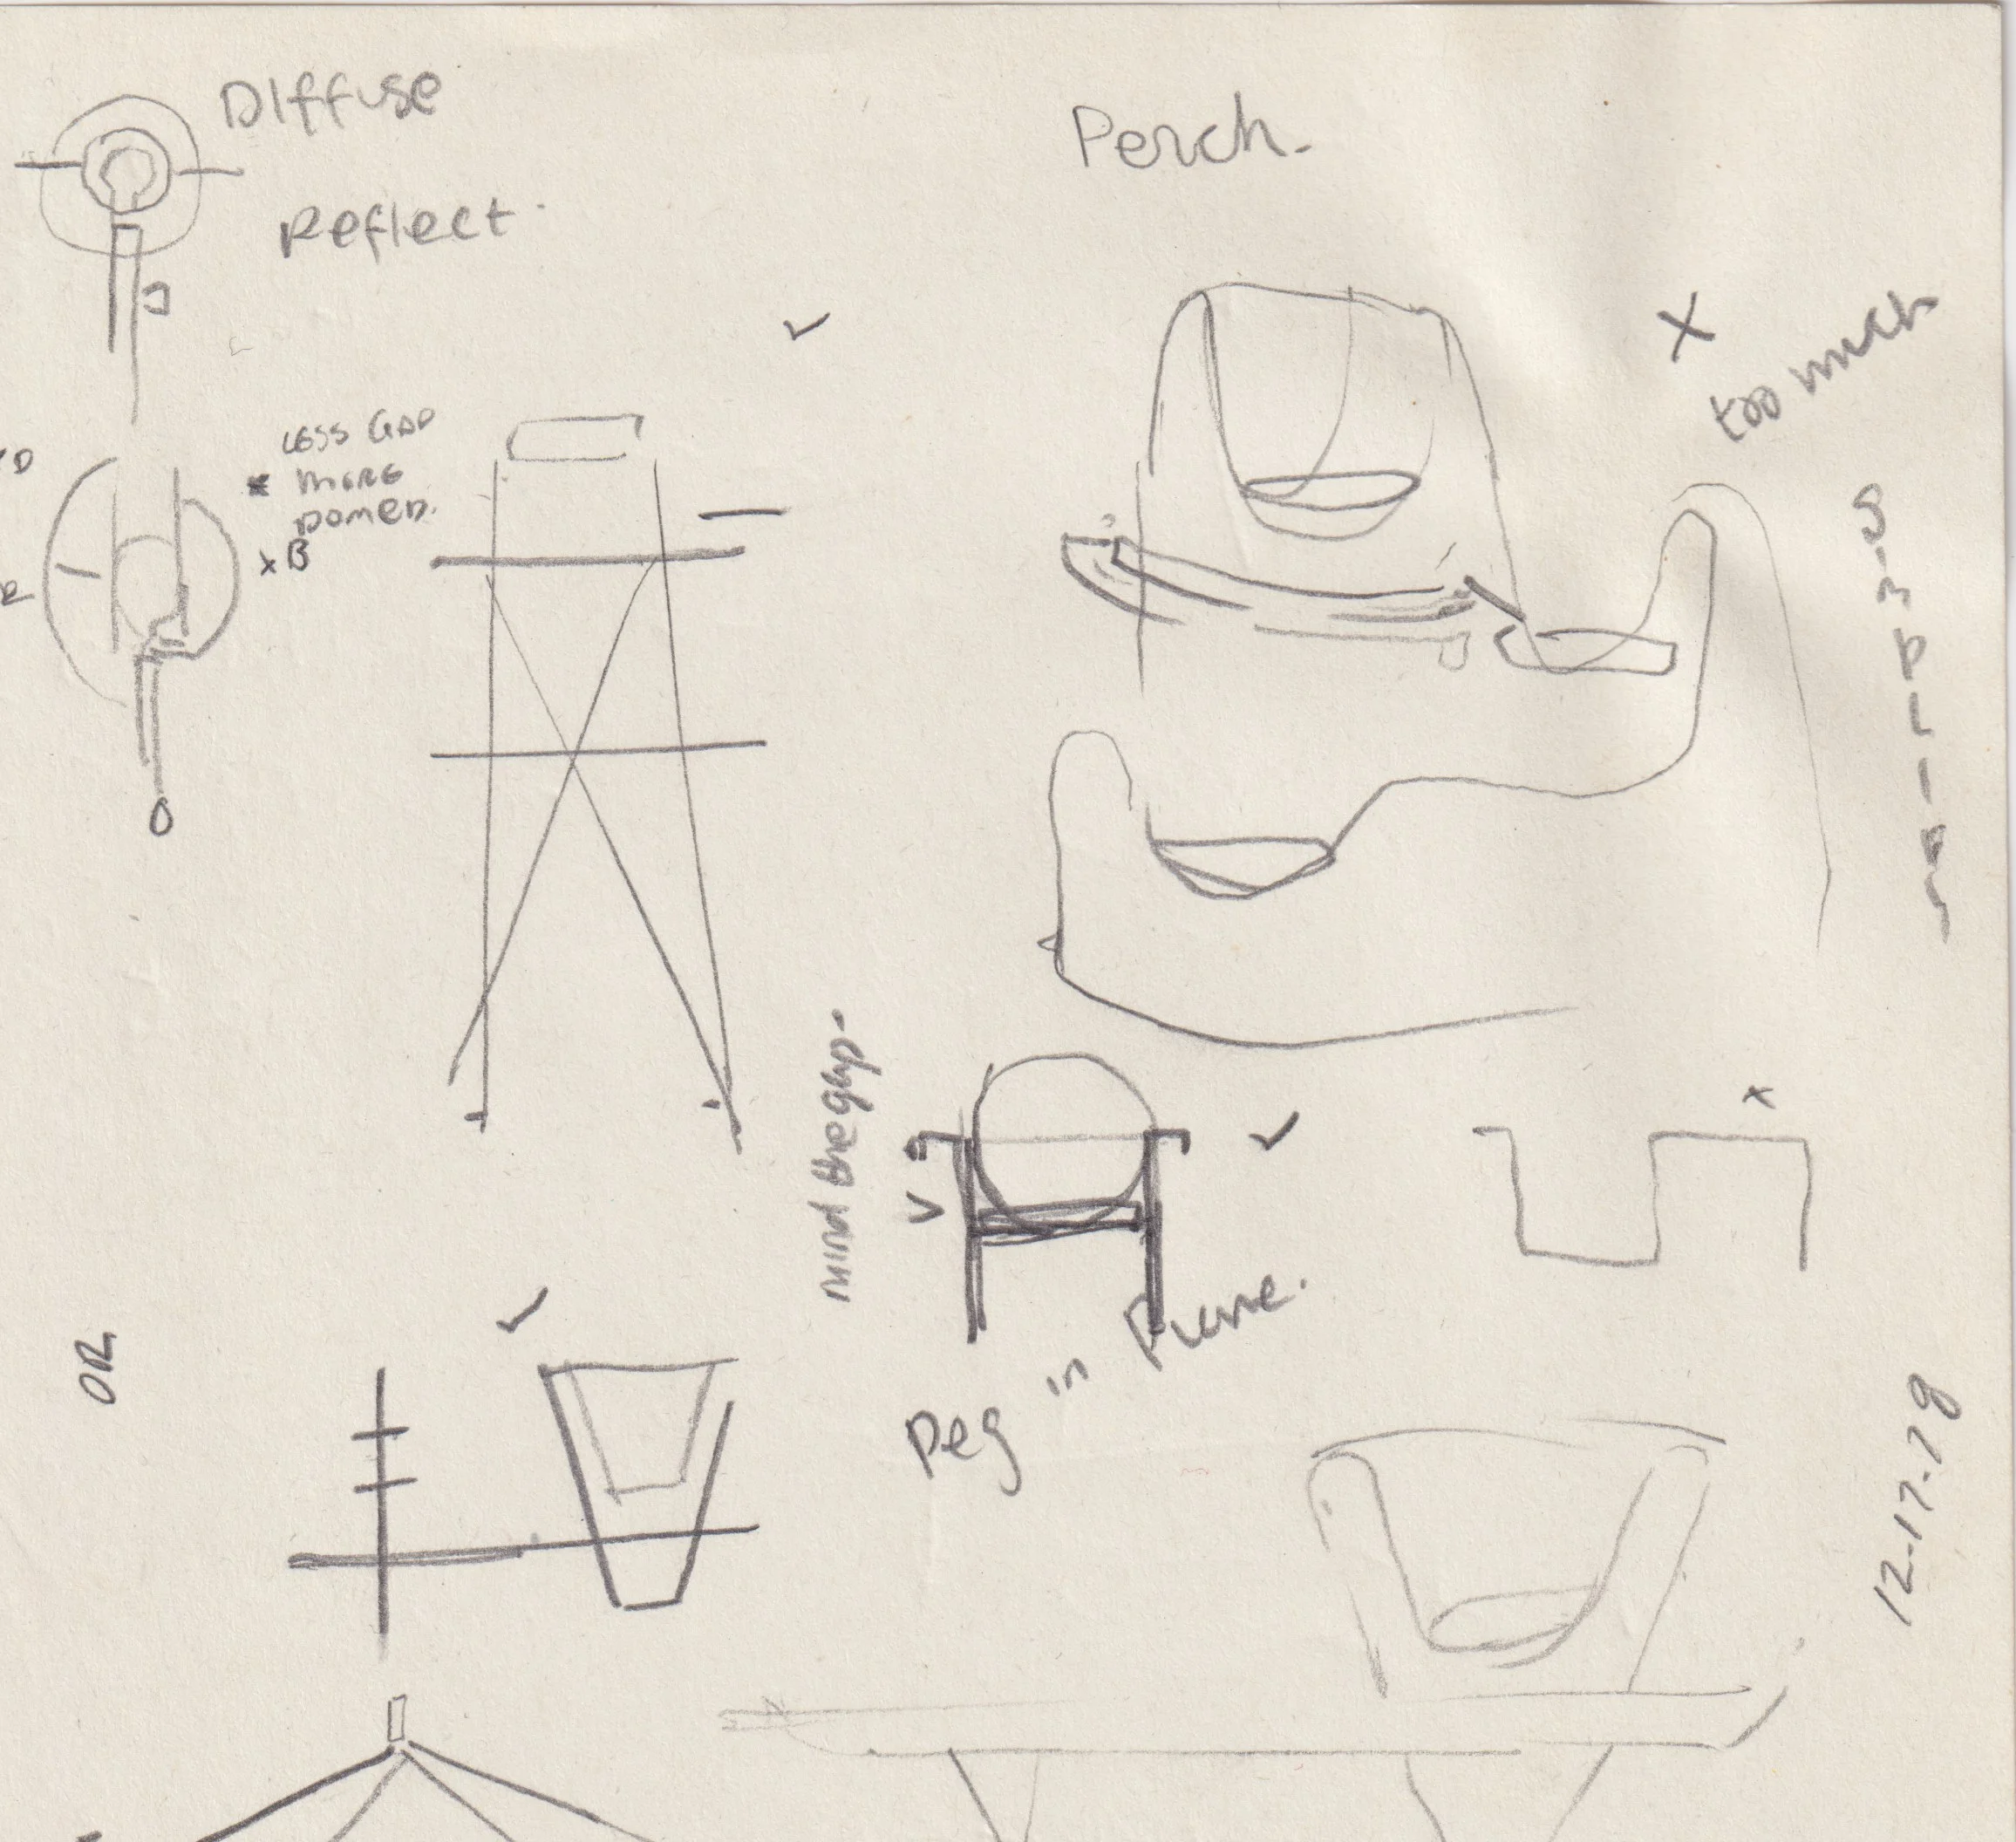 Diffuse
Reflect.
Perch.
X
too much
LESS GAP
* MORE
DOMED.
x B
mind the gap-
x
Peg in Frame.
OR
12-17-78